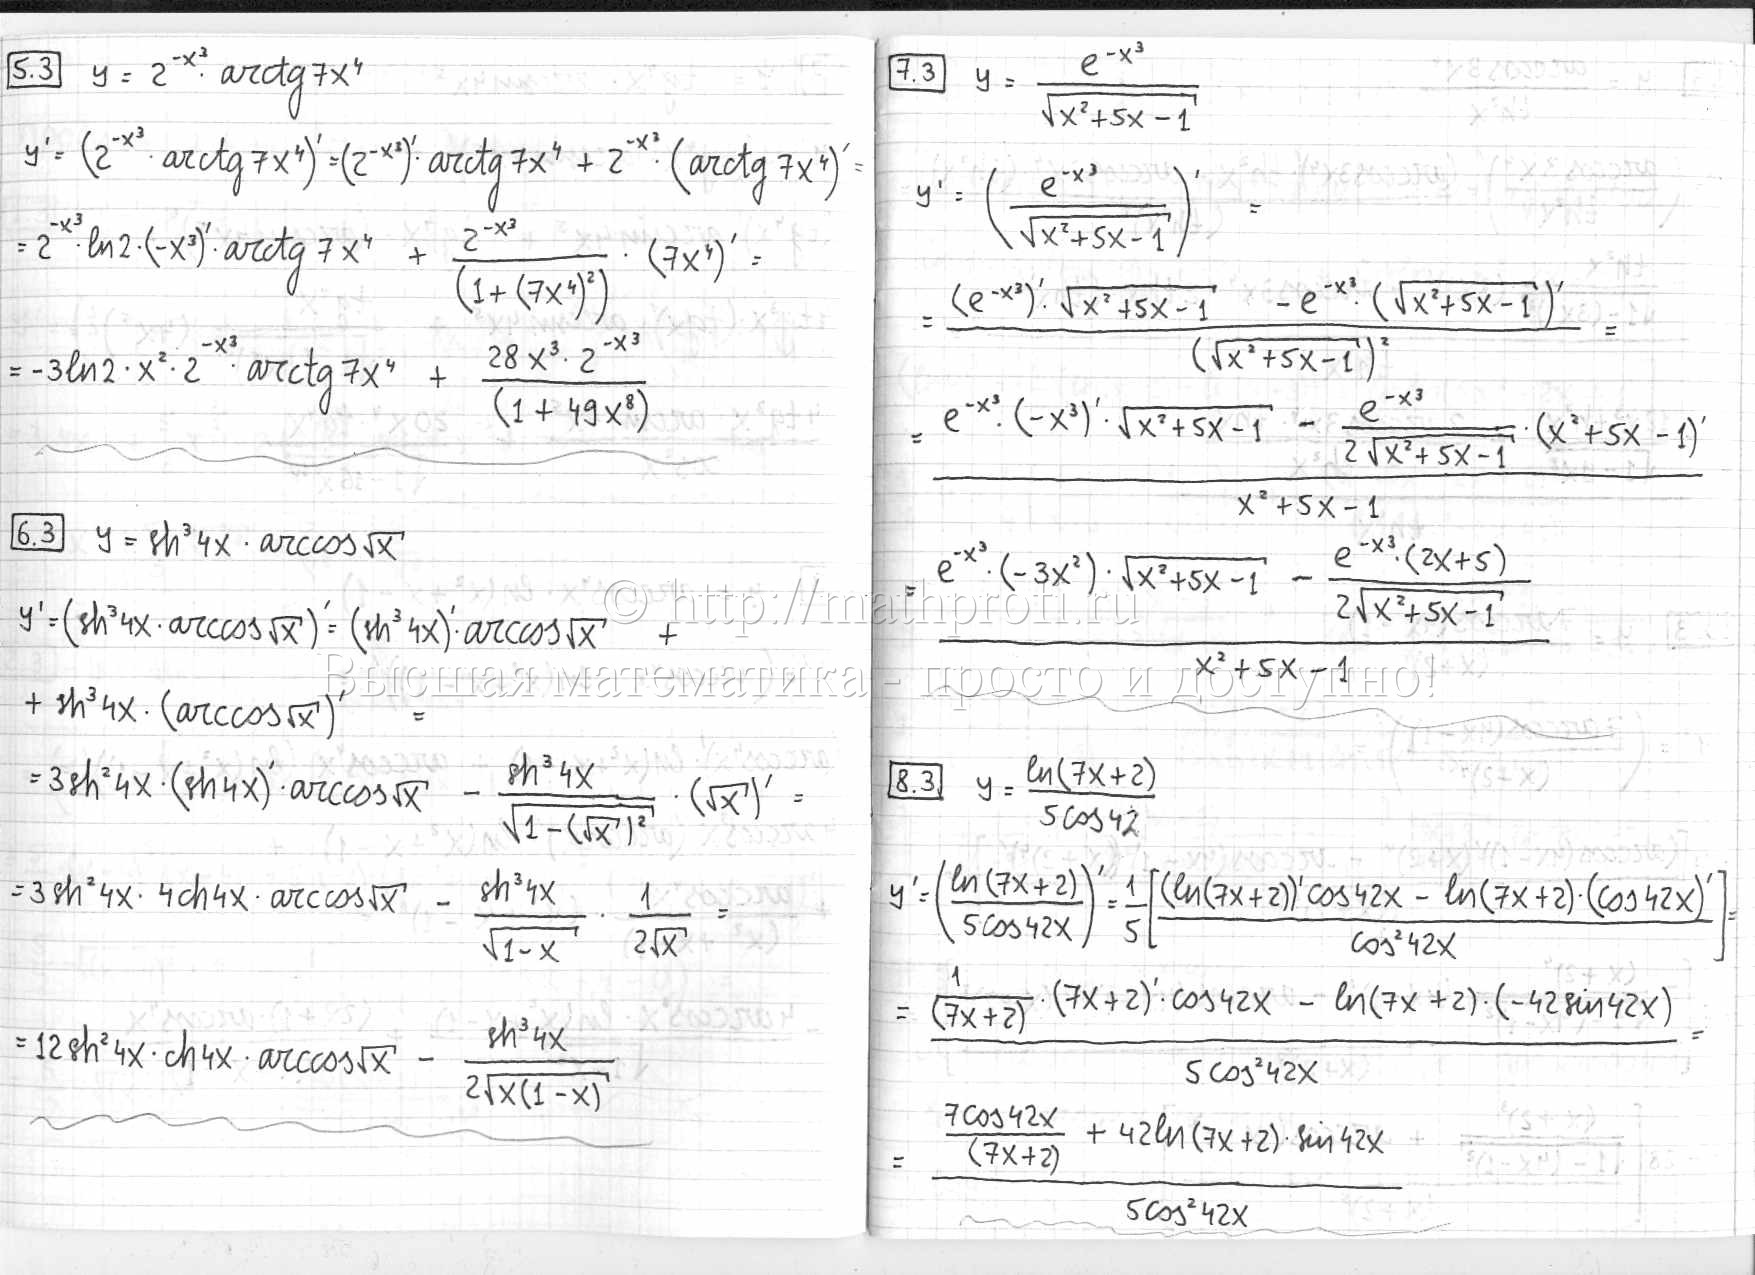 5.3 y = 2^{-x³} · arctg 7x⁴
y' = (2^{-x³} · arctg 7x⁴)' = (2^{-x³})' · arctg 7x⁴ + 2^{-x³} · (arctg 7x⁴)' =
= 2^{-x³} · ln2 · (-x³)' · arctg 7x⁴ + \frac{2^{-x³}}{(1 + (7x⁴)²)} · (7x⁴)' =
= -3ln2 · x² · 2^{-x³} · arctg 7x⁴ + \frac{28x³ · 2^{-x³}}{(1 + 49x⁸)}
6.3 y = sh³4x · arccos√x
y' = (sh³4x · arccos√x)' = (sh³4x)' · arccos√x +
+ sh³4x · (arccos√x)' =
= 3sh²4x · (sh4x)' · arccos√x - \frac{sh³4x}{\sqrt{1-(√x)²}} · (√x)' =
= 3sh²4x · 4ch4x · arccos√x - \frac{sh³4x}{\sqrt{1-x}} · \frac{1}{2√x} =
= 12sh²4x · ch4x · arccos√x - \frac{sh³4x}{2\sqrt{x(1-x)}}
7.3 y = \frac{e^{-x³}}{\sqrt{x²+5x-1}}
y' = (\frac{e^{-x³}}{\sqrt{x²+5x-1}})' =
= \frac{(e^{-x³})' · \sqrt{x²+5x-1} - e^{-x³} · (\sqrt{x²+5x-1})'}{(\sqrt{x²+5x-1})²} =
= \frac{e^{-x³} · (-x³)' · \sqrt{x²+5x-1} - \frac{e^{-x³}}{2\sqrt{x²+5x-1}} · (x²+5x-1)'}{x²+5x-1}
= \frac{e^{-x³} · (-3x²) · \sqrt{x²+5x-1} - \frac{e^{-x³} · (2x+5)}{2\sqrt{x²+5x-1}}}{x²+5x-1}
8.3 y = \frac{ln(7x+2)}{5cos42}
y' = (\frac{ln(7x+2)}{5cos42x})' = \frac{1}{5}[\frac{(ln(7x+2))'cos42x - ln(7x+2) · (cos42x)'}{cos²42x}] =
= \frac{\frac{1}{(7x+2)} · (7x+2)' · cos42x - ln(7x+2) · (-42sin42x)}{5cos²42x} =
= \frac{\frac{7cos42x}{(7x+2)} + 42ln(7x+2) · sin42x}{5cos²42x}
© http://mathprofi.ru
Высшая математика - просто и доступно!